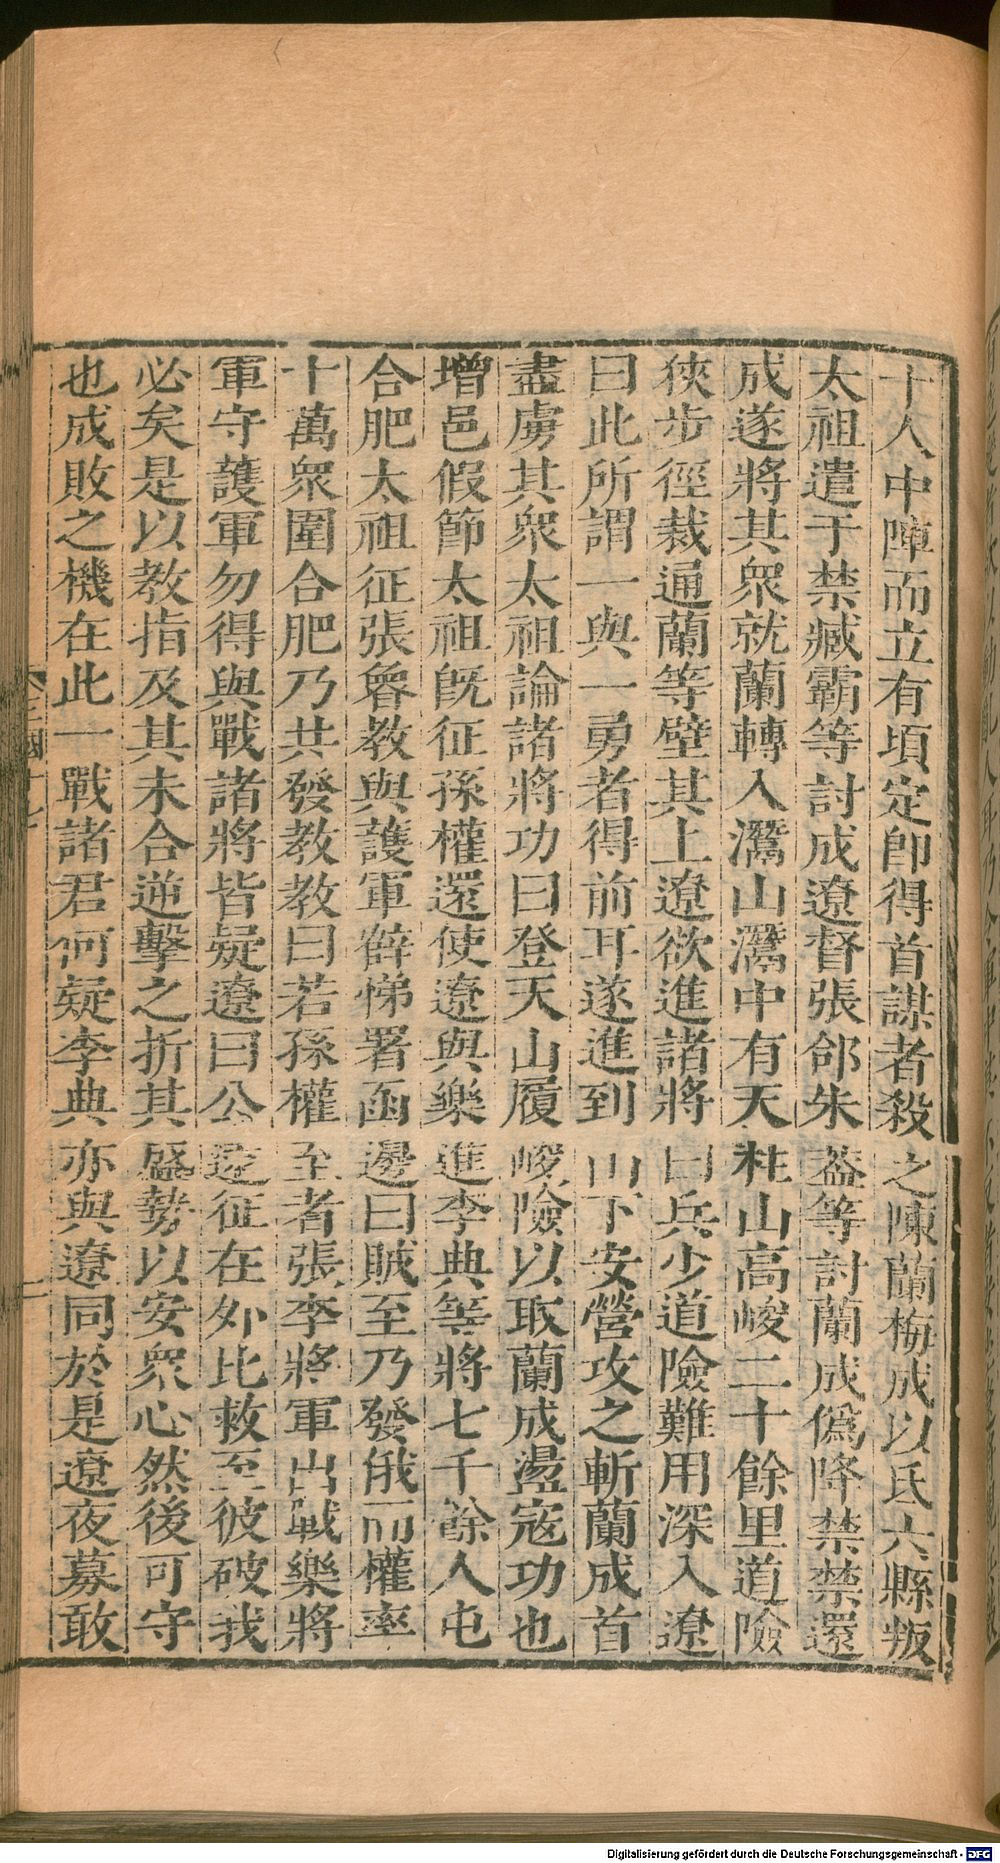 十人中陣而立有頃定卽得首謀者殺之陳蘭梅成以氐六縣叛
太祖遣于禁臧霸等討成遼督張郃朱葢等討蘭成僞降禁禁還
成遂將其衆就蘭轉入灊山灊中有天柱山高峻二十餘里道險
狹步徑裁通蘭等壁其上遼欲進諸將曰兵少道險難用深入遼
曰此所謂一與一勇者得前耳遂進到山下安營攻之斬蘭成首
盡虜其衆太祖論諸將功曰登天山履峻險以取蘭成盪寇功也
增邑假節太祖旣征孫權還使遼與樂進李典等將七千餘人屯
合肥太祖征張魯教與護軍薛悌署函邊曰賊至乃發俄而權率
十萬衆圍合肥乃共發教教曰若孫權至者張李將軍出戰樂將
軍守護軍勿得與戰諸將皆疑遼曰公遠征在外比救至彼破我
必矣是以教指及其未合逆擊之折其盛勢以安衆心然後可守
也成敗之機在此一戰諸君何疑李典亦與遼同於是遼夜募敢
Digitalisierung gefördert durch die Deutsche Forschungsgemeinschaft - DFG